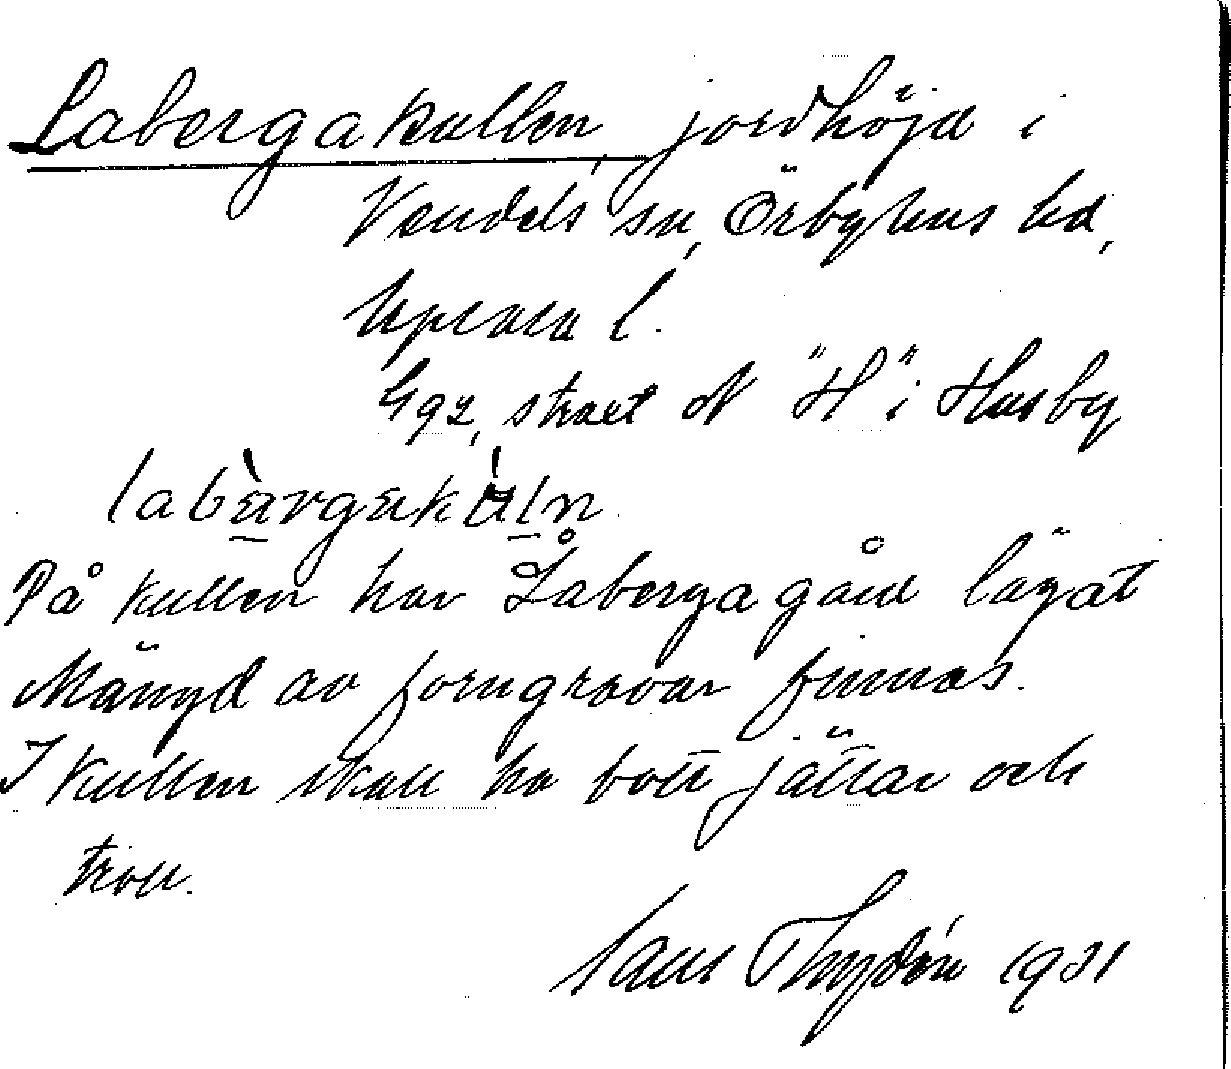 Labergakullen, jordhöjd i
Vendels sn, Örbyhus hd,
Uppsala l.
strax N "H" i Husby
På kullen har Laberga gård lägat
Mängd av forngravar finnas.
I kullen skall ha bott jättar och
troll.
Thydén 1931